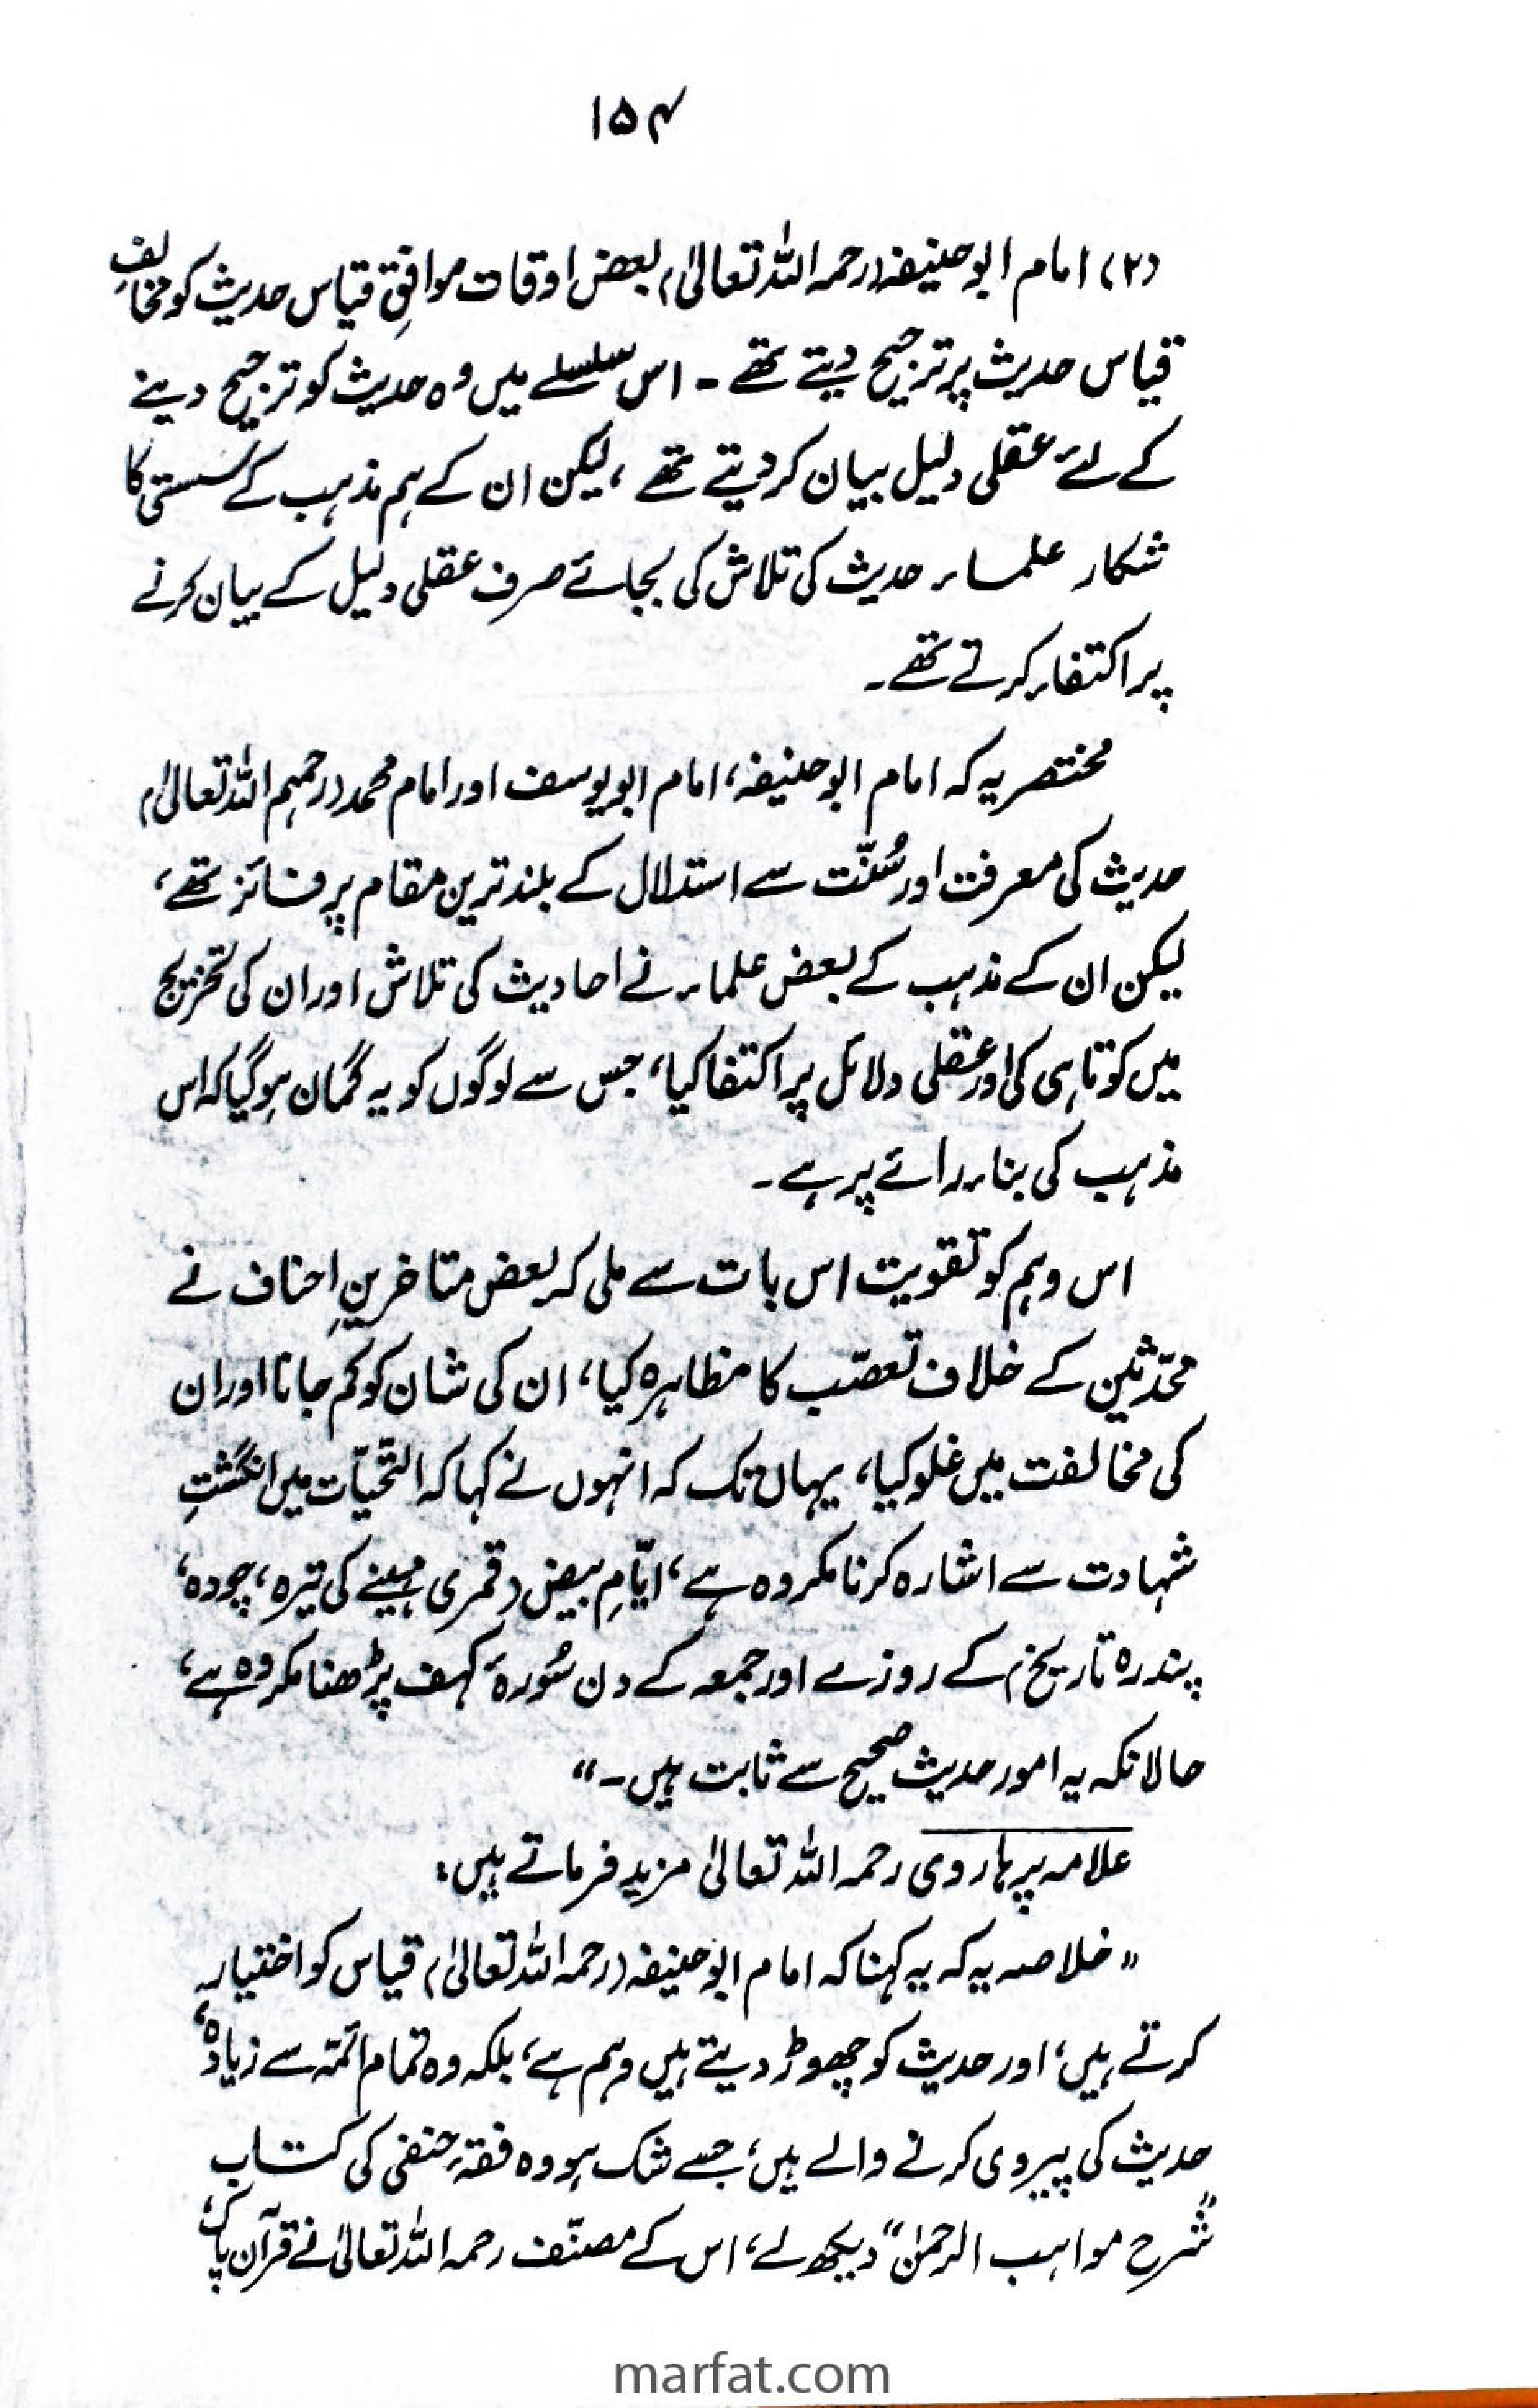 ۱۵۴
(۲) امام ابوحنیفہ (رحمہ اللہ تعالیٰ) بعض اوقات موافقِ قیاس حدیث کو مخالفِ
قیاس حدیث پر ترجیح دیتے تھے - اس سلسلے میں وہ حدیث کو ترجیح دینے
کے لئے عقلی دلیل بیان کر دیتے تھے ، لیکن ان کے ہم مذہب کے سُستی کا
شکار علماء حدیث کی تلاش کی بجائے صرف عقلی دلیل کے بیان کرنے
پر اکتفاء کرتے تھے۔
مختصر یہ کہ امام ابوحنیفہ، امام ابویوسف اور امام محمد (رحمہم اللہ تعالیٰ)
حدیث کی معرفت اور سُنّت سے استدلال کے بلند ترین مقام پر فائز تھے،
لیکن ان کے مذہب کے بعض علماء نے احادیث کی تلاش اور ان کی تخریج
میں کوتاہی کی اور عقلی دلائل پر اکتفا کیا، جس سے لوگوں کو یہ گمان ہوگیا کہ اس
مذہب کی بناء رائے پر ہے۔
اس وہم کو تقویت اس بات سے ملی کہ بعض متاخرینِ احناف نے
محدّثین کے خلاف تعصّب کا مظاہرہ کیا، ان کی شان کو کم جانا اور ان
کی مخالفت میں غلو کیا، یہاں تک کہ انہوں نے کہا کہ التّحیّات میں انگشتِ
شہادت سے اشارہ کرنا مکروہ ہے، ایّامِ بیض (قمری مہینے کی تیرہ، چودہ،
پندرہ تاریخ) کے روزے اور جمعہ کے دن سُورۂ کہف پڑھنا مکروہ ہے،
حالانکہ یہ امور حدیث صحیح سے ثابت ہیں۔“
علامہ پرہاروی رحمہ اللہ تعالیٰ مزید فرماتے ہیں:
”خلاصہ یہ کہ یہ کہنا کہ امام ابوحنیفہ (رحمہ اللہ تعالیٰ) قیاس کو اختیار
کرتے ہیں، اور حدیث کو چھوڑ دیتے ہیں وہم ہے، بلکہ وہ تمام ائمّہ سے زیادہ
حدیث کی پیروی کرنے والے ہیں، جسے شک ہو وہ فقہِ حنفی کی کتاب
”شرح مواہب الرحمٰن“ دیکھ لے، اس کے مصنّف رحمہ اللہ تعالیٰ نے قرآن پاک،
marfat.com